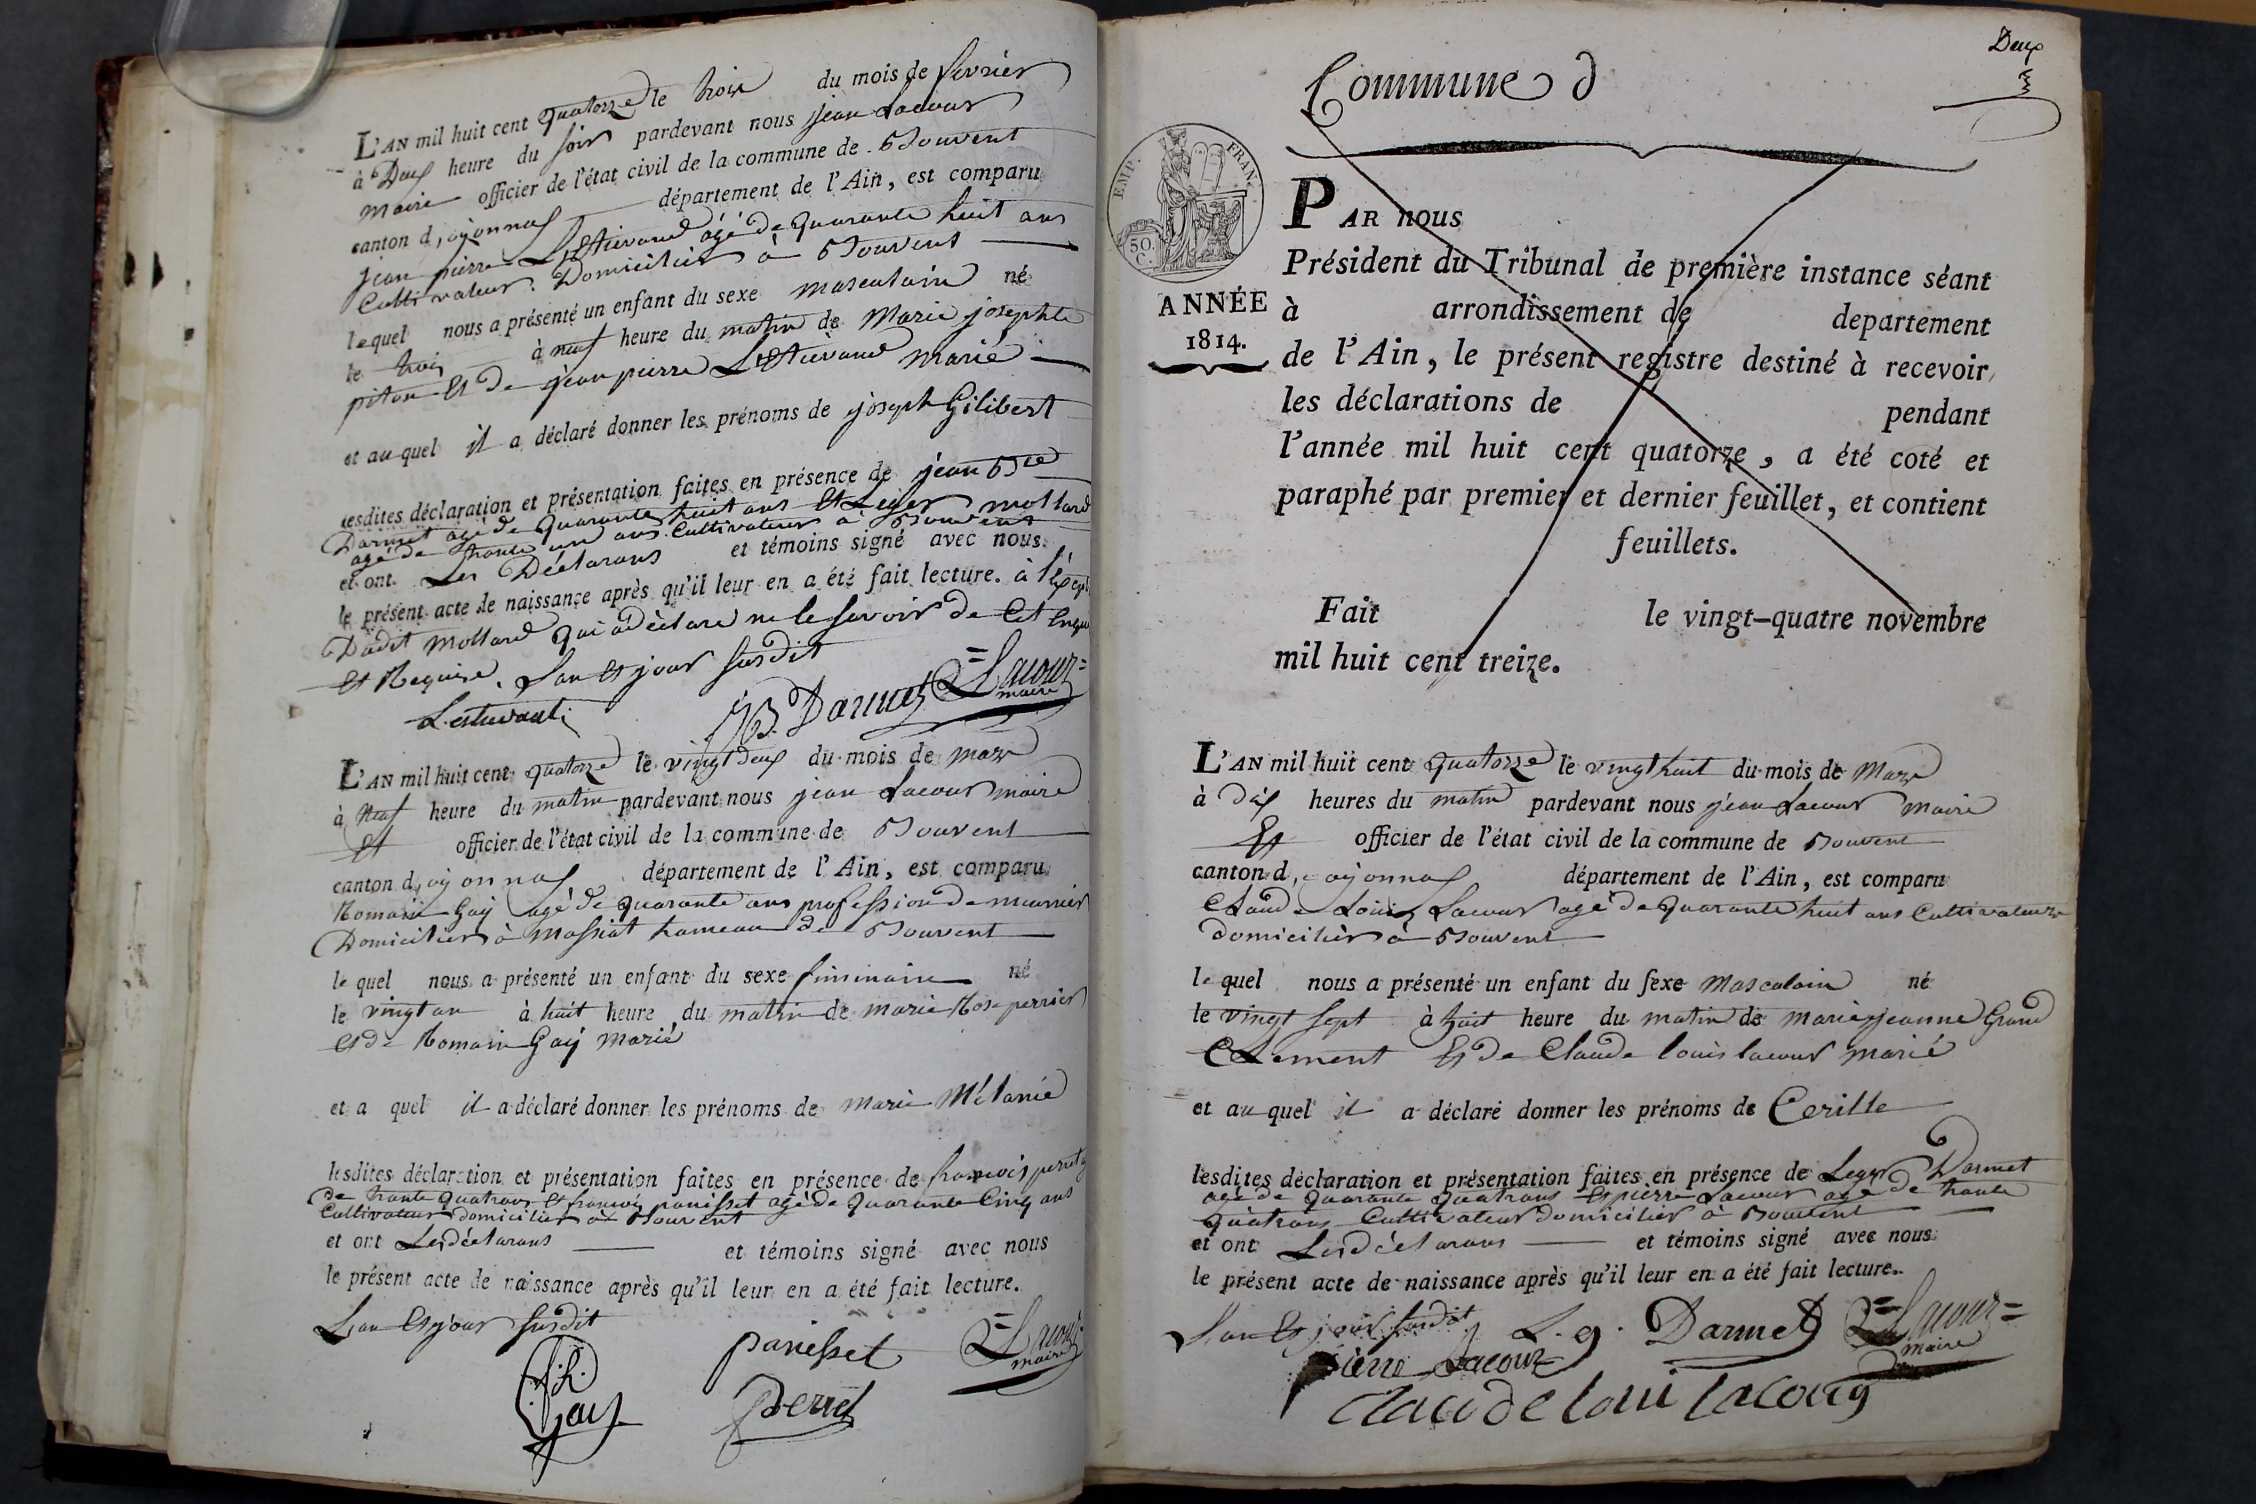 L'AN mil huit cent quatorze le trois du mois de fevrier
à Deux heure du soir pardevant nous jean Lacour
maire officier de l'état civil de la commune de Bouvent
canton d'oyonnax département de l'Ain, est comparu
jean pierre L'Estievand agé de quarante huit ans
Cultivateur Domicilier à Bouvent
lequel nous a présenté un enfant du sexe masculain né
le trois à neuf heure du matin de Marie josephte
piton Et de jean pierre L'Estievand marié
et au quel il a déclaré donner les prénoms de joseph Gilibert
lesdites déclaration et présentation faites en présence de jean Bte
Darmet agé de quarante huit ans Et Leger mollard
agé de trante un ans Cultivateur à Bouvent
et ont Les Déclarans et témoins signé avec nous
le présent acte de naissance après qu'il leur en a été fait lecture. à l'éxcept
Dudit mollard qui a déclaré ne le savoir de Cet Enquis
Et Requise. L'an Et jour susdit
Lestievant JB. Darmet Lacour
maire
L'AN mil huit cent quatorze le vingt deux du mois de mars
à Neuf heure du matin pardevant nous jean Lacour maire
Et officier de l'état civil de la commune de Bouvent
canton d'oyonnax département de l'Ain, est comparu
Romain Gay agé de quarante ans profession de meunier
Domicilier à Massiat hameau de Bouvent
le quel nous a présenté un enfant du sexe feminain né
le vingt un à huit heure du matin de marie Rose perrier
Et de Romain Gay marié
et a quel il a déclaré donner les prénoms de marie Mélanie
lesdites déclaration et présentation faites en présence de francois perret
de trante quatrans Et francois panisset agé de quarante Cinq ans
Cultivateur domicilier à Bouvent
et ont Les déclarans et témoins signé avec nous
le présent acte de naissance après qu'il leur en a été fait lecture.
L'an Et jour susdit
panisset Lacour
maire
Gay perret
Deux
Commune d
EMP. FRANÇ.
50.
C.
ANNÉE
1814.
PAR nous
Président du Tribunal de première instance séant
à arrondissement de departement
de l'Ain, le présent registre destiné à recevoir
les déclarations de pendant
l'année mil huit cent quatorze, a été coté et
paraphé par premier et dernier feuillet, et contient
feuillets.
Fait le vingt-quatre novembre
mil huit cent treize.
L'AN mil huit cent quatorze le vingt huit du mois de Mars
à dix heures du matin pardevant nous jean Lacour maire
Et officier de l'état civil de la commune de Bouvent
canton d'oyonnax département de l'Ain, est comparu
Claude Louis Lacour agé de quarante huit ans Cultivateur
domicilier à Bouvent
le quel nous a présenté un enfant du sexe Masculain né
le vingt sept à huit heure du matin de marie jeanne Grand
Clement Et de Claude louis lacour marié
et au quel il a déclaré donner les prénoms de Cerille
lesdites déclaration et présentation faites en présence de Leger Darmet
agé de quarante quatrans Et pierre Lacour agé de trante
quatrans Cultivateur domicilier à Bouvent
et ont Les déclarans et témoins signé avec nous
le présent acte de naissance après qu'il leur en a été fait lecture.
L'an Et jour susdit L. g. Darmet Lacour
maire
pierre Lacour
claude loui lacour